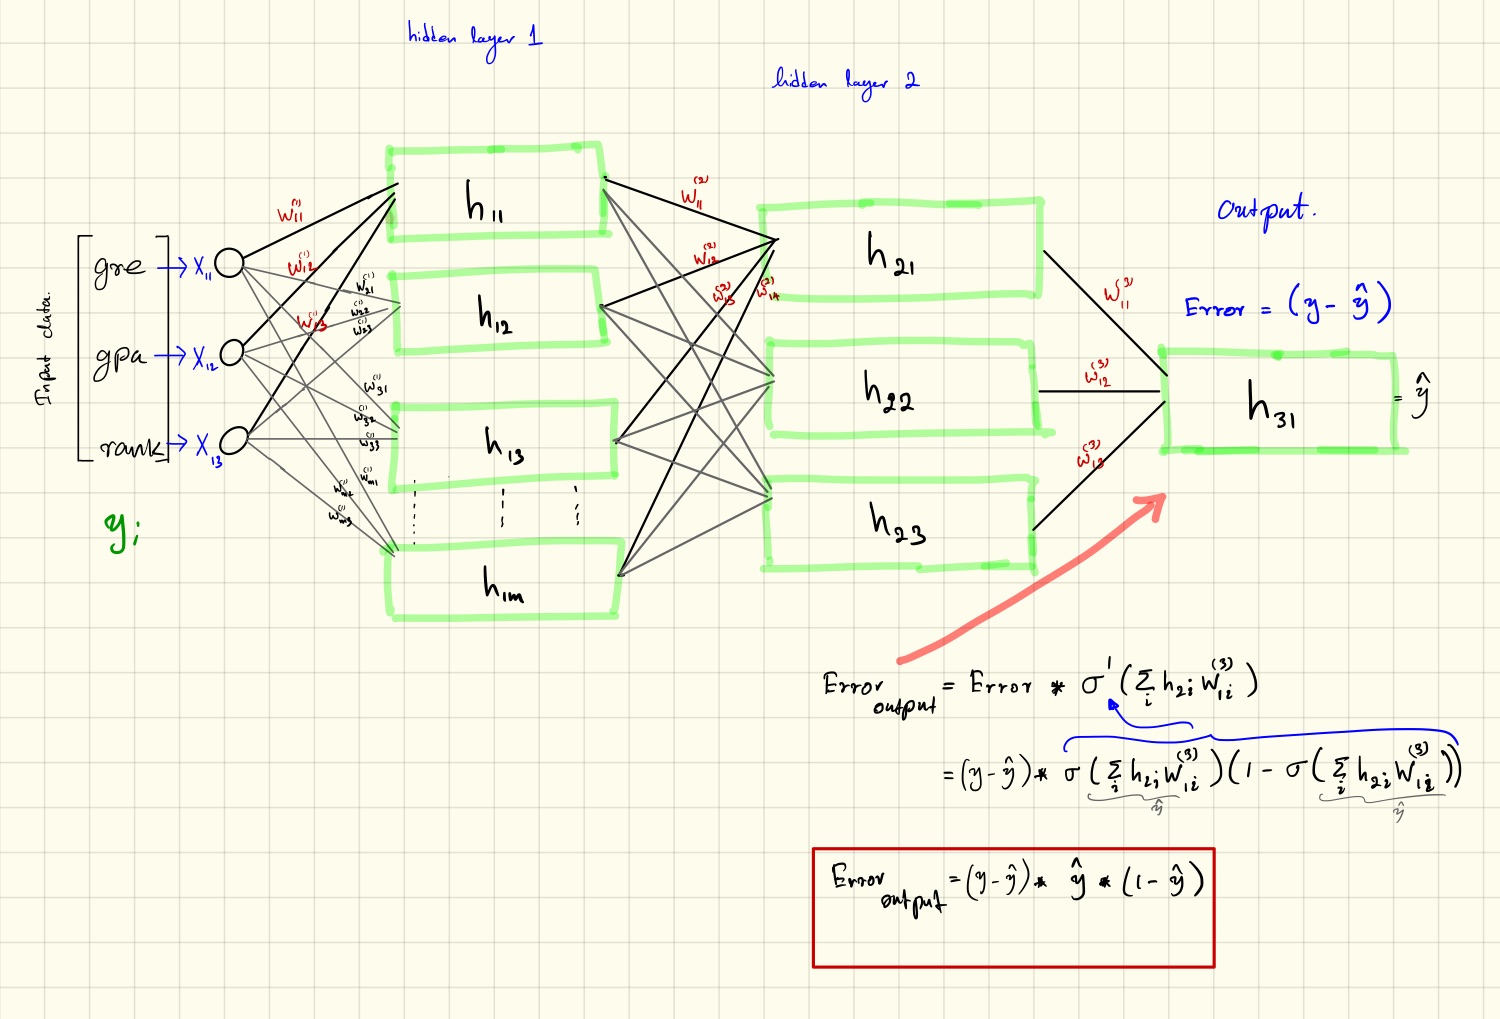 hidden layer 1
hidden layer 2
Input data.
gre → X₁₁
gpa → X₁₂
rank → X₁₃
yᵢ
W₁₁⁽¹⁾
W₁₂⁽¹⁾
W₁₃⁽¹⁾
W₂₁⁽¹⁾
W₂₂⁽¹⁾
W₂₃⁽¹⁾
W₃₁⁽¹⁾
W₃₂⁽¹⁾
W₃₃⁽¹⁾
Wₘ₁⁽¹⁾
Wₘ₂⁽¹⁾
Wₘ₃⁽¹⁾
h₁₁
h₁₂
h₁₃
h₁ₘ
W₁₁⁽²⁾
W₁₂⁽²⁾
W₁₃⁽²⁾
W₁₄⁽²⁾
h₂₁
h₂₂
h₂₃
W₁₁⁽³⁾
W₁₂⁽³⁾
W₁₃⁽³⁾
Output.
Error = (y - ŷ)
h₃₁ = ŷ
Error output = Error * σ'(Σᵢ h₂ᵢ W₁ᵢ⁽³⁾)
= (y - ŷ) * σ(Σᵢ h₂ᵢ W₁ᵢ⁽³⁾)(1 - σ(Σᵢ h₂ᵢ W₁ᵢ⁽³⁾))
ŷ ŷ
Error output = (y - ŷ) * ŷ * (1 - ŷ)